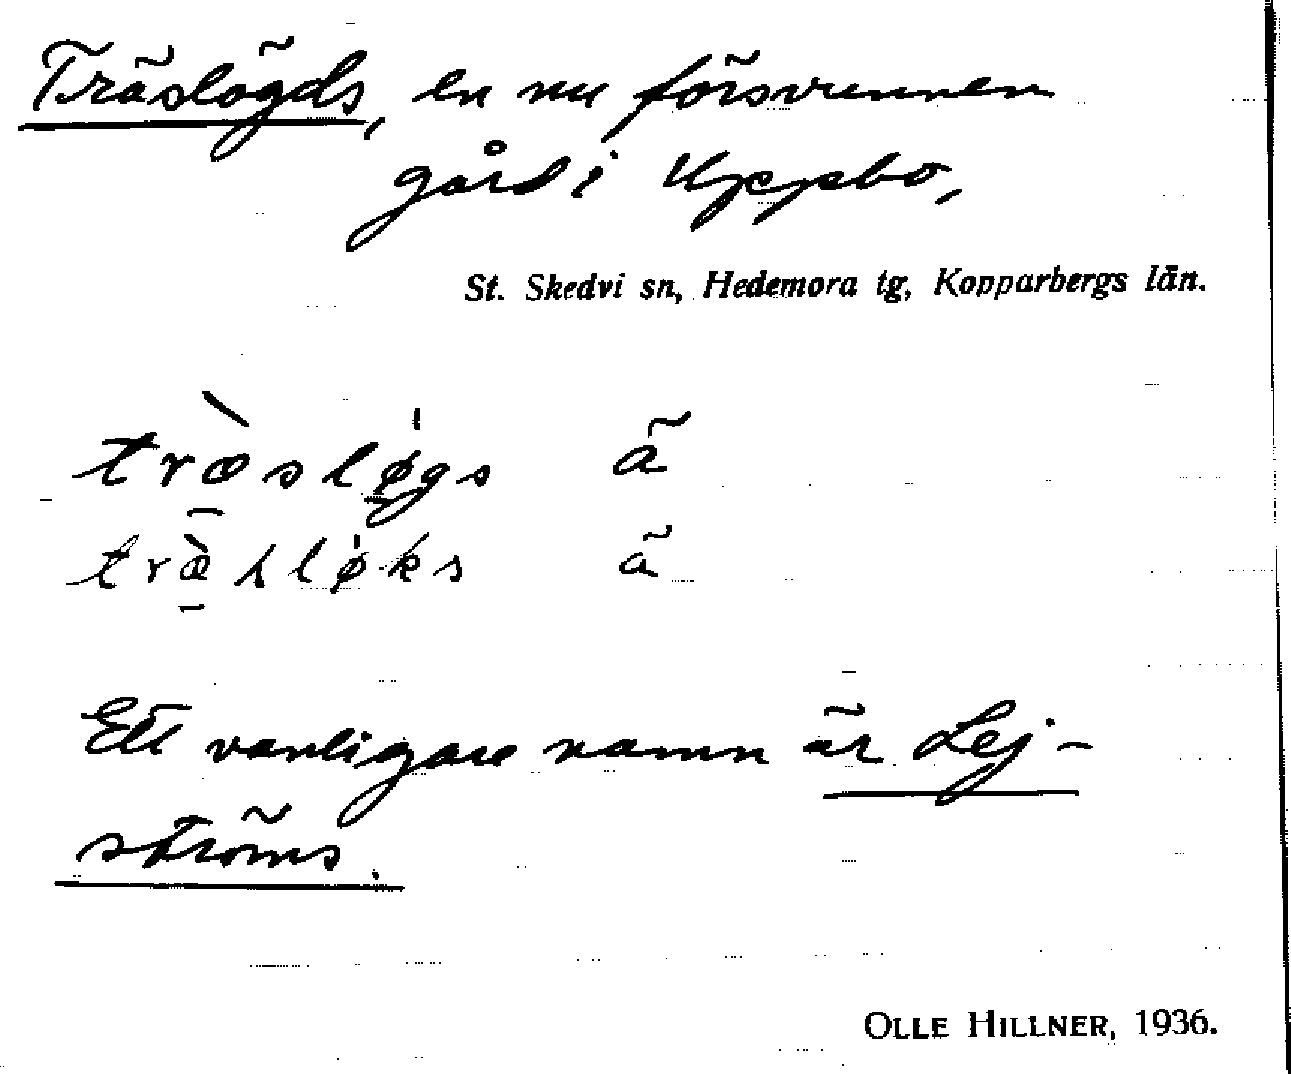 Träslögds, en nu försvunnen
gård i Uppbo,
St. Skedvi sn, Hedemora tg, Kopparbergs län.
træ̀sløgs ä
træ̀sløks ä
Ett vanligare namn är Lej-
ströms.
OLLE HILLNER, 1936.